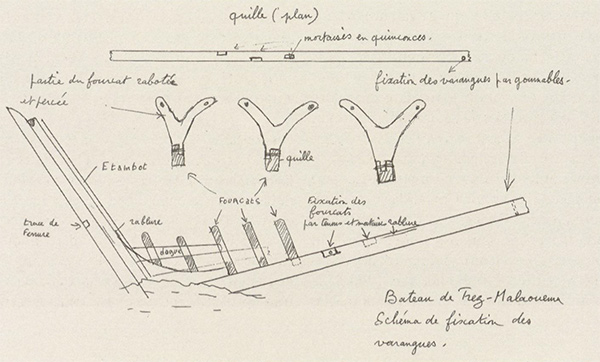 quille (plan)
mortaisés en quinconces.
partie du fourcat rabotée
et percée
fixation des varangues par gournables.
quille
Etambot
FOURCATS
Fixation des
fourcats
par tenons et mortaise
rablure
rablure
trace de
ferrure
Bateau de Trez-Malaouen
Schéma de fixation des
varangues.